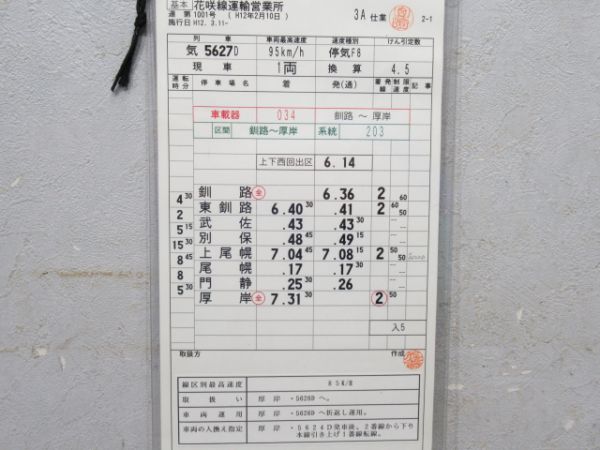 基本 花咲線運輸営業所
運 第 1001号 ( H12年2月10日 ) 3A 仕業 2-1
施行日 H12. 3.11-
列車 車両最高速度 速度種別 けん引定数
気 5627D 95km/h 停気F8
現車 1両 換算 4.5
運転時分 停車場名 着 発(通) 着発線 制限速度 記事
車載器 034 釧路 ～ 厚岸
区間 釧路～厚岸 系統 203
上下西回出区 6.14
釧路 全 6.36 2 60
4 30
東釧路 6.40 30 .41 2 60 50
2
武佐 .43 .43 30
5 15
別保 .48 45 .49 15
15 30
上尾幌 7.04 45 7.08 15 2 50 50
8 45
尾幌 .17 .17 30
8
門静 .25 30 .26
5 30
厚岸 全 7.31 30 2 50
入5
取扱方 作成
線区別最高速度 85K/H
取扱い 厚岸 ・5628D へ。
車両運用 厚岸 ・5628D へ折返し運用。
車両の入換え指定 厚岸 ・5624D発車後、2番線から下り本線引き上げ1番線転線。